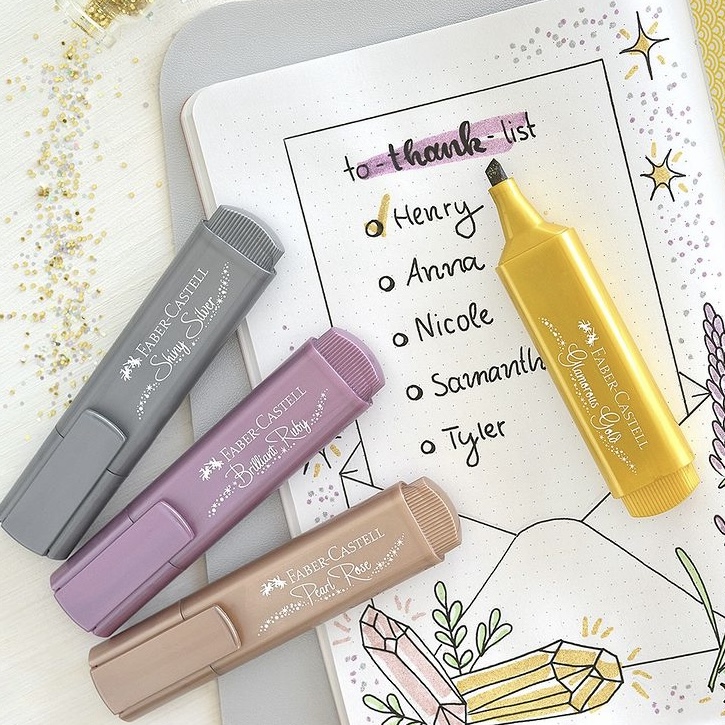 to-thank-list
Henry
Anna
Nicole
Samanth
Tyler
FABER-CASTELL
Shiny Silver
FABER-CASTELL
Brilliant Ruby
FABER-CASTELL
Pearl Rose
FABER-CASTELL
Glamorous Gold